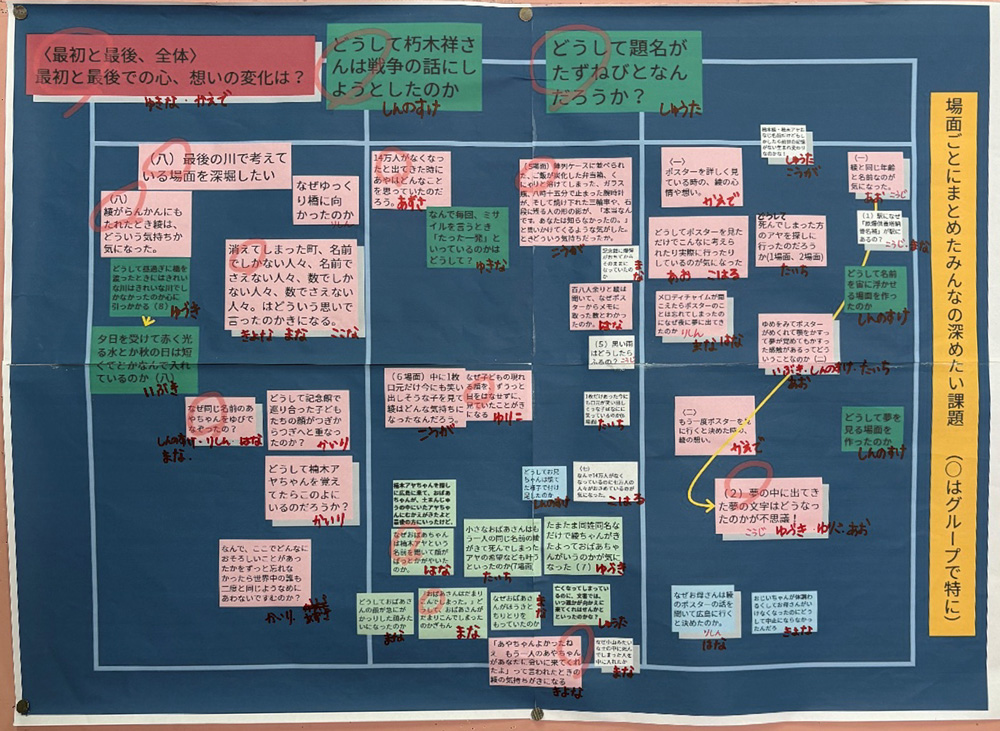 場面ごとにまとめたみんなの深めたい課題 (○はグループで特に)
〈最初と最後、全体〉
最初と最後での心、想いの変化は？
ゆきな・かえで
どうして朽木祥さ
んは戦争の話にし
ようとしたのか
しんのすけ
どうして題名が
たずねびとなん
だろうか？
しゅうた
(八) 最後の川で考えて
いる場面を深堀したい
なぜゆっく
り橋に向
かったのか
(八)
綾がらんかんにも
たれたとき綾は、
どういう気持ちか
気になった。
どうして昼過ぎに橋を
渡ったときにはきれい
な川はきれいな川でし
かなかったのか心に
引っかかる (8)
ゆうき
夕日を受けて赤く光
る水とか秋の日は短
くてとかなんで入れ
ているのか (八)
いぶき
消えてしまった町、名前
でしかない人々、名前で
さえない人々、数でしか
ない人々、数でさえない
人々。はどういう思いで
言ったのかきになる。
きよな まな ここな
なぜ同じ名前のあ
やちゃんをゆびで
なぞったの？
しんのすけ・りしん・はな
まな
どうして記念館で
巡り合った子ども
たちの顔がつぎか
らつぎへと重なっ
たのか？
かいり
どうして楠木ア
ヤちゃんを覚え
てたらこのよに
いるのだろうか？
かいり
なんで、ここでどんなに
おそろしいことがあっ
たかをずっと忘れな
かったら世界中の誰も
二度と同じようなめに
あわないですむのか？
かいり
14万人がなくなっ
たと出てきた時に
あやはどんなこと
を思っていたのだ
ろう。
あずさ
なんで毎回、ミサ
イルを言うとき
「たった一発」と
いっているのかは
どうして？
ゆきな
(5場面) 陳列ケースに並べられ
た、ご飯が炭化した弁当箱、く
にゃりと溶けてしまった、ガラス
瓶、八時十五分で止まった腕時計
が、そして焼け下れた三輪車や、石
段に残る人の形の影が、「本当なん
です。あなたは知らなかったの。」
と問いかけてくるような気がした。
のときどういう気持ちだったか。
こうが
百八人余りと綾
は聞いて、なぜポス
ターからメモに
取った数とわかっ
たのか。
はな
(5) 黒い雨
はどうしたら
ふるの？
(6場面) 中に1枚
口元だけ今にも笑い
出しそうな子を見て
綾はどんな気持ちに
なったんだろう。
こうが
なぜ子どもの現れ
る顔を、ずうっと
目をはなせず、
見ていたことがき
になる
ゆりこ
どうしてお兄
ちゃんは慌て
た様子で付け
足したのか
しんのすけ
(七)
なんで14万人がなくな
っているのに七万人の
人々がおさめているのが
気になった。
こはる
楠木アヤちゃんを探し
に広島に来て、おばあ
なぜおばあちゃん
は楠木アヤという
名前を聞いて顔が
ぱっとかがやいた
のか。
はな
小さなおばあさんはも
う一人の同じ名前の綾
がきて死んでしまった
アヤの希望なども叶う
といったのか(7場面)
たいち
たまたま同姓同名な
だけで綾ちゃんがき
たよっておばあちゃ
んがいうのかが気に
なった (7)
ゆうき
どうしておばあち
んの顔が急にが
かっりした顔みた
いになったのか
まな
「おばあさんはだまり
こんでしまった。」どう
して、おばあさんが
だまりこんでしまった
のかぎもん
まな
なぜおばあさ
んがほうきと
ちりとりを
もっていたのか
まな
亡くなってしまっている
のに、文章では、
いつ誰かが向かえに
来てくれはずせんか
といったのかな？
しゅうた
「あやちゃんよかったね
え もう一人のあやちゃん
があなたに会いに来てくれ
たよ」って言われたときの
綾の気持ちがきになる
きよな
(一)
ポスターを詳しく見
ている時の、綾の心
情や想い。
かえで
しゅうた
こうが
(一)
綾と同じ年齢
と名前なのが
気になった。
あお こうじ
(1) 駅になぜ
「原爆供養塔納
骨名簿」が駅に
あるの？
こうじ・まな
どうしてポスターを見
ただけでこんなに考えら
れたり実際に行ったりし
ているのが気になった
あお こはる
どうして
死んでしまった方
のアヤを探しに
行ったのだろう
か(1場面、2場面)
たいち
どうして名前
を宙に浮かせ
る場面を作っ
たのか
しんのすけ
メロディチャイムが間
こえたらポスターのこ
とは忘れてしまったの
になぜ夜に夢に出てき
たのか
りしん
まな はな
ゆめをみてポスター
がめくれて顎をかすっ
て夢が覚めてもかすっ
た感触があるってどう
いうことなのか (二)
いぶき・しんのすけ・たいち
あお
(二)
もう一度ポスターを見
に行くと決めた時の、
綾の想い。
かえで
どうして夢を
見る場面を
作ったのか
しんのすけ
(2) 夢の中に出てき
た夢の文字はどうなっ
たのかが不思議！
こうじ ゆうき・ゆいと・あお
なぜお母さんは綾
のポスターの話を
聞いて広島に行く
と決めたのか。
りしん
はな
おじいちゃんが体調わ
るくしてお母さんがい
けなくなったのにどう
して中止にならなかっ
たんだろ
きよな